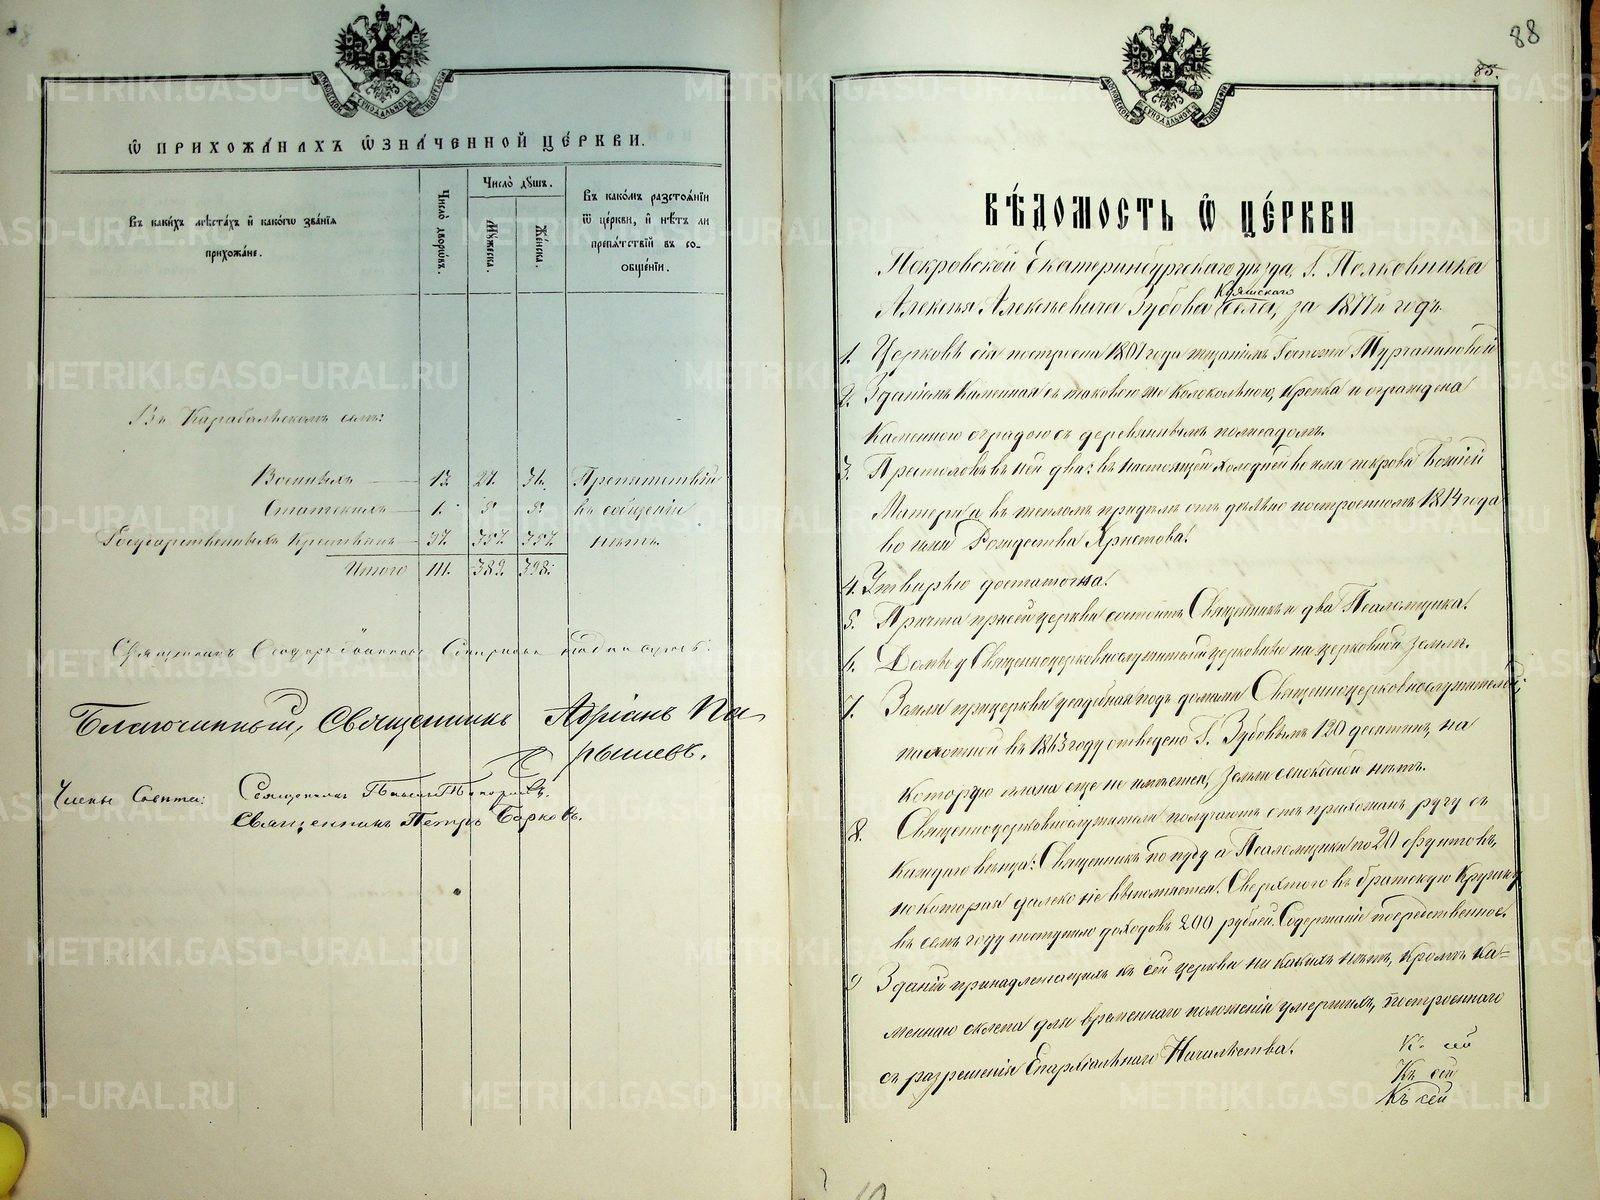 Ѿ ПРИХОЖА́НАХЪ Ѡ҆ЗНА́ЧЕННОЙ ЦЕ́РКВИ.
Въ каки́хъ мѣ́стахъ и҆ како́гѡ зва́нїѧ
прихожа́не.
Число̀ дворѡ́въ.
Число̀ дꙋ́шъ.
Мꙋ́жеска.
Же́нска.
Въ како́мъ разстоѧ́нїи
ѿ це́ркви, и҆ нѣ́тъ ли
препѧ́тствїй въ со-
ѻбще́нїи.
Въ Карабольскомъ селѣ:
Военныхъ 13. 27. 31. Препятствій
Статскихъ 1. 5. 8. въ сообщеніи
Государственныхъ Крестьянъ 357. 357. нѣтъ.
Итого 111. 389. 398.
Священникъ подписуюсь:
Благочинный, Священникъ Адріанъ Па-
рышевъ.
Члены Совета: Священникъ
Священникъ Петръ Борковъ.
88
85.
МОСКОВСКОЙ СѴНОДАЛЬНОЙ ТИПОГРАФІИ
ВѢ́ДОМОСТЬ Ѿ ЦЕ́РКВИ
Покровской Екатеринбургскаго уѣзда, Г. Полковника
Куяшскаго
Алексѣя Алексѣевича Зубова села, за 1877й годъ.
1. Церковь сія построена 1801 года тщаніемъ Госпожи Турчаниновой
2. Зданіемъ Каменная съ таковою же Колокольнею, крепка и ограждена
Каменною оградою съ деревяннымъ полисадомъ.
3. Престоловъ въ ней два: въ настоящей холодной во имя покрова Божіей
Матери, а въ тепломъ приделѣ отдѣльно построенномъ 1814 года
во имя Рождества Христова.
4. Утварью достаточна.
5. Причта при сей церкви состоитъ Священникъ и два Псаломщика.
6. Домы у Священноцерковнослужителей церковные на церковной Землѣ.
7. Земли при церкви усадебная подъ домами Священноцерковнослужителей;
пахотной въ 1863 году отведено Г. Зубовымъ 120 десятин, на
которую плана еще не имѣется, Земли сенокосной нѣтъ.
8. Священноцерковнослужители получаютъ отъ прихожанъ ругу съ
каждаго венца: Священникъ по пуду а Псаломщики по 20 фунтовъ,
но которая далеко не выполняется. Сверхъ того въ братскую Кружку
въ семъ году поступило доходовъ 200 рублей. Содержаніе посредственное.
9 Зданій принадлежащихъ къ сей церкви ни какихъ нѣтъ, кромѣ ка=
меннаго склепа для временнаго положенія умершихъ, построеннаго
съ разрешенія Епархіальнаго Начальства.
Къ сей
Къ сей
Къ сей
METRIKI.GASO-URAL.RU